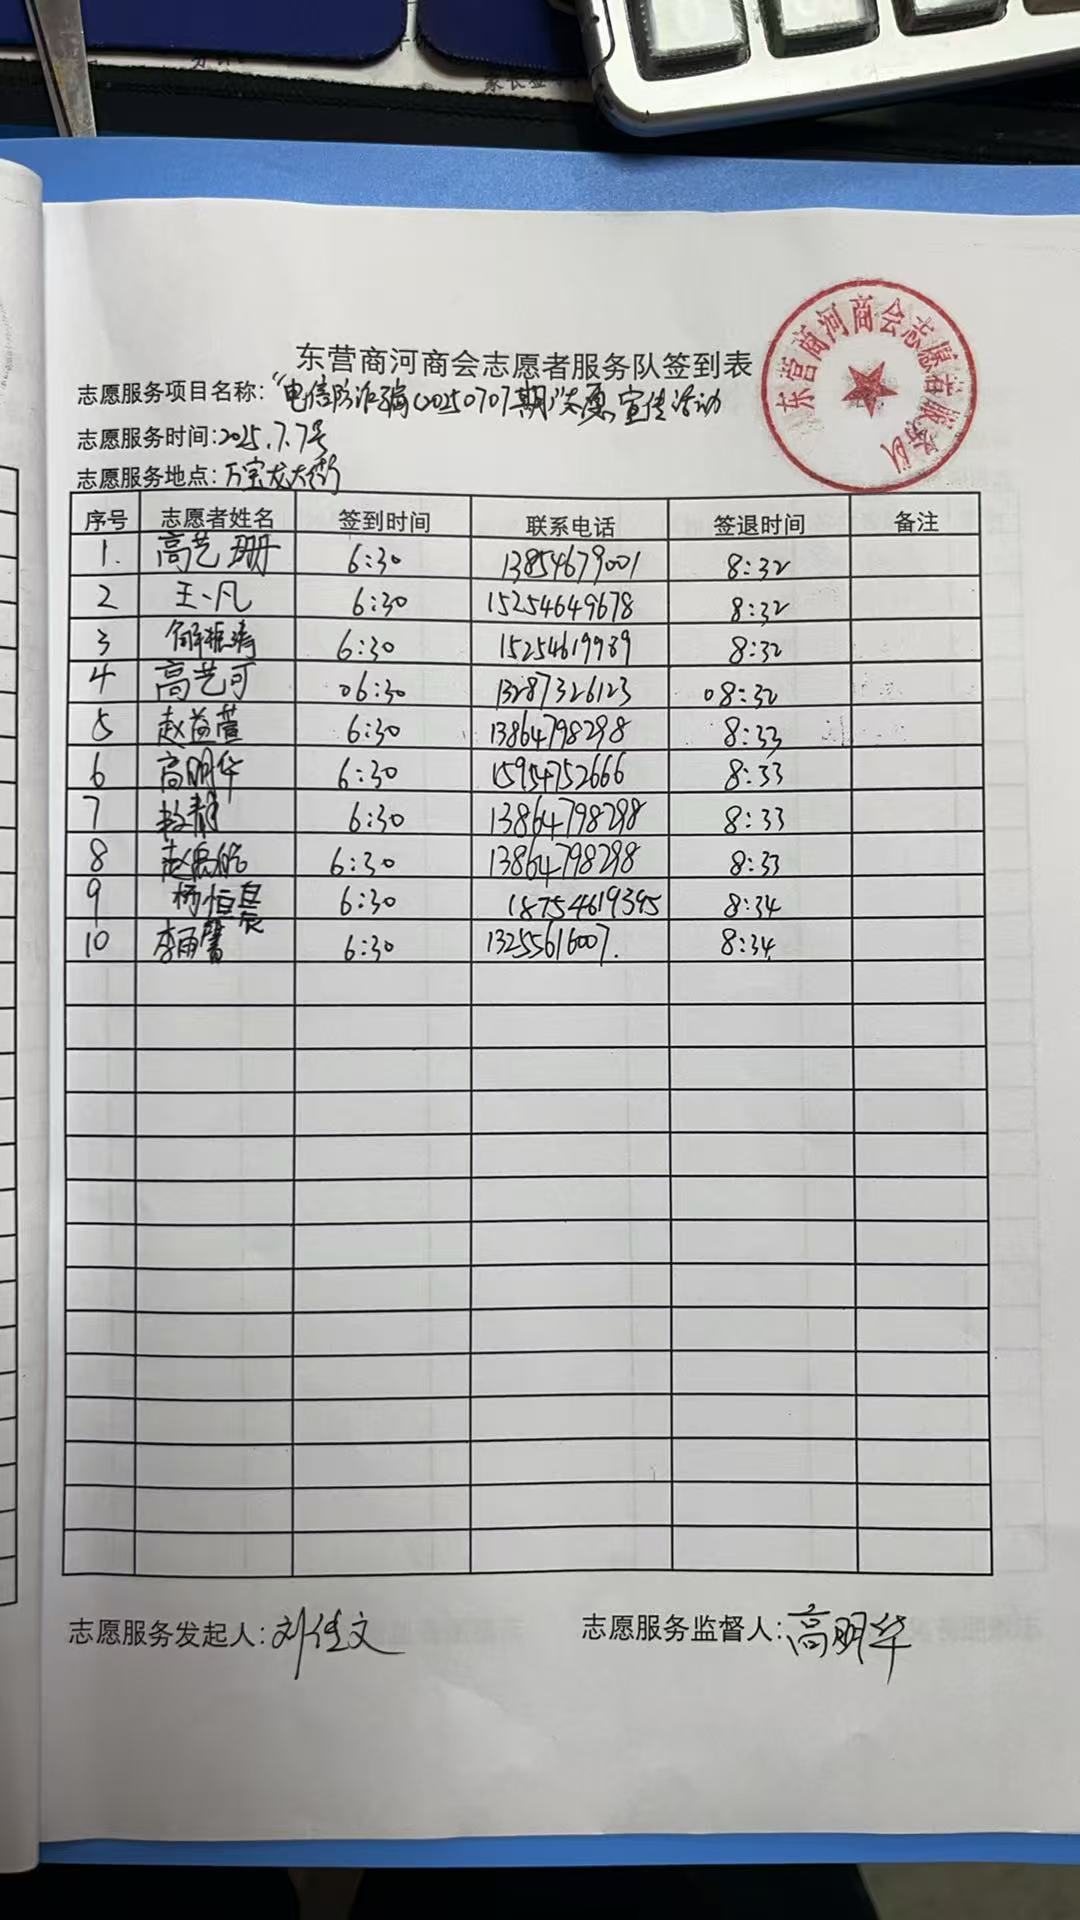 家长签
东营商河商会志愿者服务队
东营商河商会志愿者服务队签到表
志愿服务项目名称:“电信防诈骗(20250707期)”志愿宣传活动
志愿服务时间:2025.7.7号
志愿服务地点:万宝龙大街
序号 志愿者姓名 签到时间 联系电话 签退时间 备注
1. 高艺珊 6:30 13854679001 8:32
2 王一凡 6:30 15254649678 8:32
3 解振涛 6:30 15254619989 8:32
4 高艺可 06:30 13287326123 08:32
5 赵益萱 6:30 13864798298 8:33
6 高明华 6:30 15954752666 8:33
7 赵静 6:30 13864798298 8:33
8 赵 6:30 13864798298 8:33
9 杨恒晨 6:30 18754619395 8:34
10 李雨馨 6:30 13255616007. 8:34
志愿服务发起人:刘佳文 志愿服务监督人:高明华